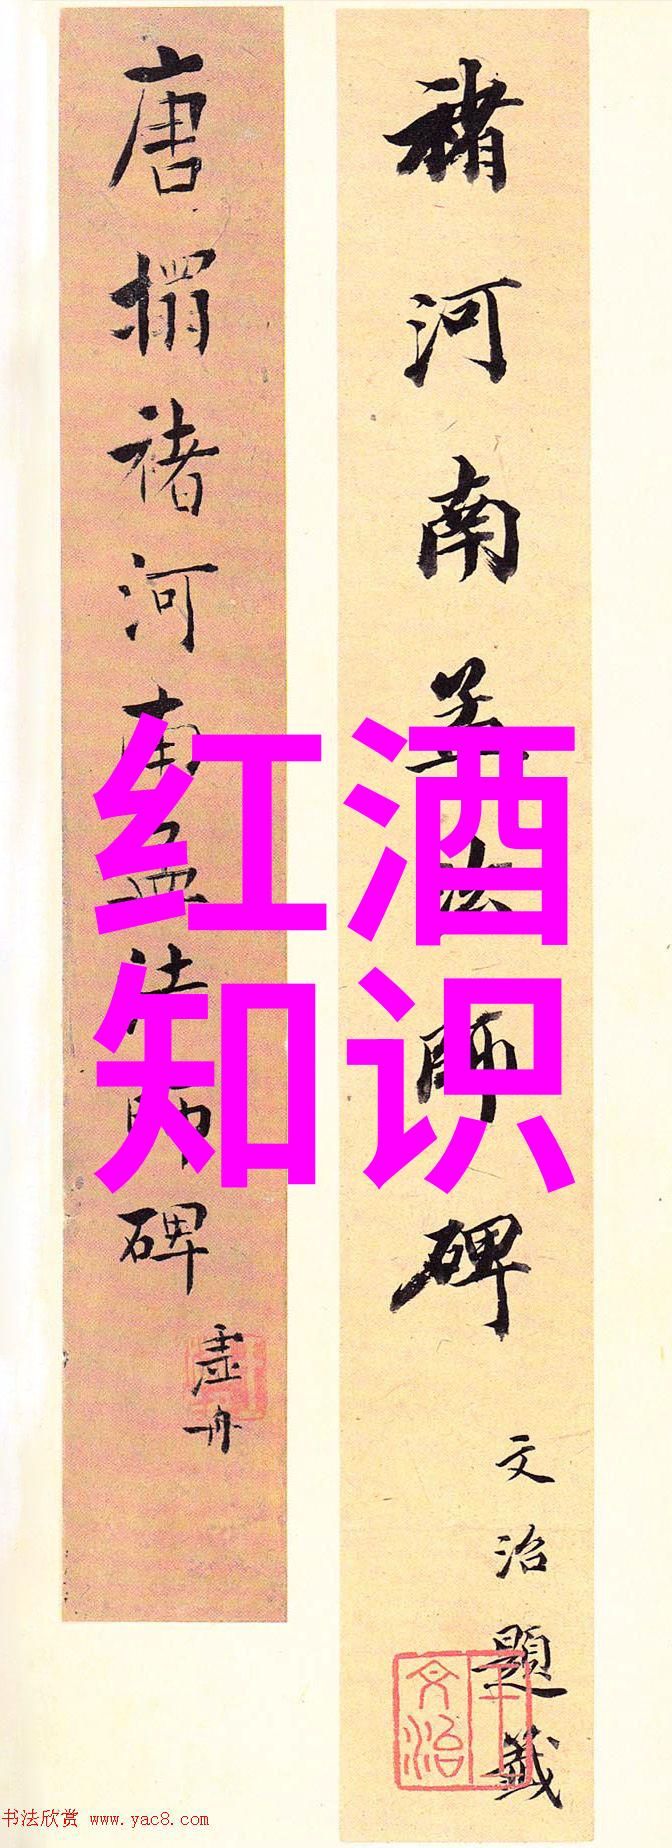 褚河南孟法师碑
文治題籤
王文治
唐搨褚河南孟法師碑
虚舟
红酒
知识
书法欣赏 www.yac8.com